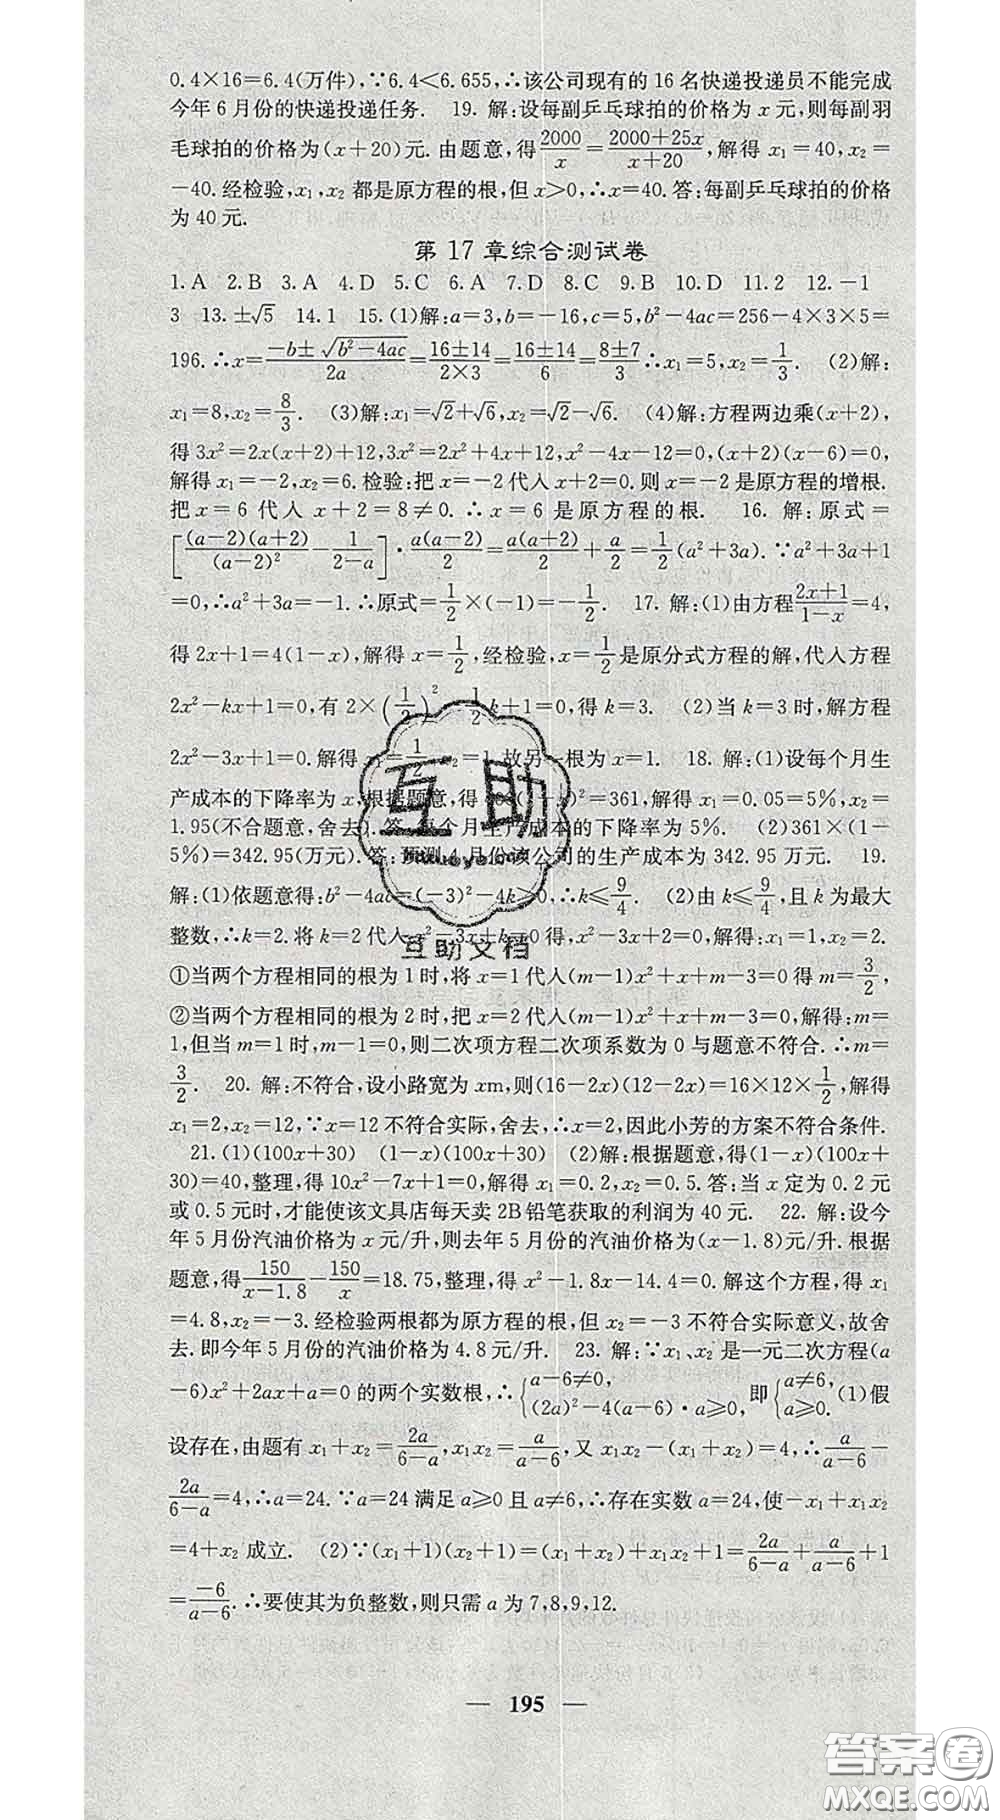 0.4×16=6.4(万件),∵6.4<6.655,∴该公司现有的16名快递投递员不能完成
今年6月份的快递投递任务. 19. 解:设每副乒乓球拍的价格为x元,则每副羽
毛球拍的价格为(x+20)元.由题意,得2000/x=(2000+25x)/(x+20),解得x₁=40,x₂=
-40.经检验,x₁,x₂都是原方程的根,但x>0,∴x=40.答:每副乒乓球拍的价格
为40元.
第17章综合测试卷
1.A 2.B 3.A 4.D 5.C 6.A 7.D 8.C 9.B 10.D 11.2 12.-1
3 13.±√5 14.1 15.(1)解:a=3,b=-16,c=5,b²-4ac=256-4×3×5=
196.∴x=(-b±√(b²-4ac))/2a=(16±14)/(2×3)=(16±14)/6=(8±7)/3∴x₁=5,x₂=1/3. (2)解:
x₁=8,x₂=8/3. (3)解:x₁=√2+√6,x₂=√2-√6. (4)解:方程两边乘(x+2),
得3x²=2x(x+2)+12,3x²=2x²+4x+12,x²-4x-12=0,(x+2)(x-6)=0,
解得x₁=-2,x₂=6.检验:把x=-2代入x+2=0.则x=-2是原方程的增根.
把x=6代入x+2=8≠0.∴x=6是原方程的根. 16. 解:原式=
[(a-2)(a+2)/(a-2)²-1/(2-a)]·a(a-2)/2=a(a+2)/2+a/2=1/2(a²+3a).∵a²+3a+1
=0,∴a²+3a=-1.∴原式=1/2×(-1)=-1/2. 17. 解:(1)由方程(2x+1)/(1-x)=4,
得2x+1=4(1-x),解得x=1/2,经检验,x=1/2是原分式方程的解,代入方程
2x²-kx+1=0,有2×(1/2)²-1/2k+1=0,得k=3. (2)当k=3时,解方程
2x²-3x+1=0.解得x₁=1/2,x₂=1.故另一根为x=1. 18. 解:(1)设每个月生
产成本的下降率为x,根据题意,得400(1-x)²=361,解得x₁=0.05=5%,x₂=
1.95(不合题意,舍去).答:每个月生产成本的下降率为5%. (2)361×(1-
5%)=342.95(万元).答:预测4月份该公司的生产成本为342.95万元. 19.
解:(1)依题意得:b²-4ac=(-3)²-4k≥0,∴k≤9/4. (2)由k≤9/4,且k为最大
整数,∴k=2.将k=2代入x²-3x+k=0得,x²-3x+2=0解得:x₁=1,x₂=2.
①当两个方程相同的根为1时,将x=1代入(m-1)x²+x+m-3=0得m=3/2,
②当两个方程相同的根为2时,把x=2代入(m-1)x²+x+m-3=0,解得:m=
1,但当m=1时,m-1=0,则二次项方程二次项系数为0与题意不符合.∴m=
3/2. 20. 解:不符合,设小路宽为xm,则(16-2x)(12-2x)=16×12×1/2,解得
x₁=2,x₂=12,∵x=12不符合实际,舍去,∴x=2,因此小芳的方案不符合条件.
21.(1)(100x+30) (1-x)(100x+30) (2)解:根据题意,得(1-x)(100x+
30)=40,整理,得10x²-7x+1=0,解得x₁=0.2,x₂=0.5.答:当x定为0.2元
或0.5元时,才能使该文具店每天卖2B铅笔获取的利润为40元. 22. 解:设今
年5月份汽油价格为x元/升,则去年5月份的汽油价格为(x-1.8)元/升.根据
题意,得150/(x-1.8)-150/x=18.75,整理,得x²-1.8x-14.4=0.解这个方程,得x₁
=4.8,x₂=-3.经检验两根都为原方程的根,但x₂=-3不符合实际意义,故舍
去.即今年5月份的汽油价格为4.8元/升. 23. 解:∵x₁、x₂是一元二次方程(a
-6)x²+2ax+a=0的两个实数根,∴{a-6≠0,(2a)²-4(a-6)·a≥0,即{a≠6,a≥0.(1)假
设存在,由题有x₁+x₂=2a/(6-a),x₁x₂=a/(a-6),又x₁x₂-(x₁+x₂)=4,∴a/(a-6)-
2a/(6-a)=4,∴a=24.∵a=24满足a≥0且a≠6,∴存在实数a=24,使-x₁+x₁x₂
=4+x₂成立. (2)∵(x₁+1)(x₂+1)=(x₁+x₂)+x₁x₂+1=2a/(6-a)+a/(a-6)+1
=-6/(a-6).∴要使其为负整数,则只需a为7,8,9,12.
— 195 —
互助
互助文档
答案圈
MXQE.COM